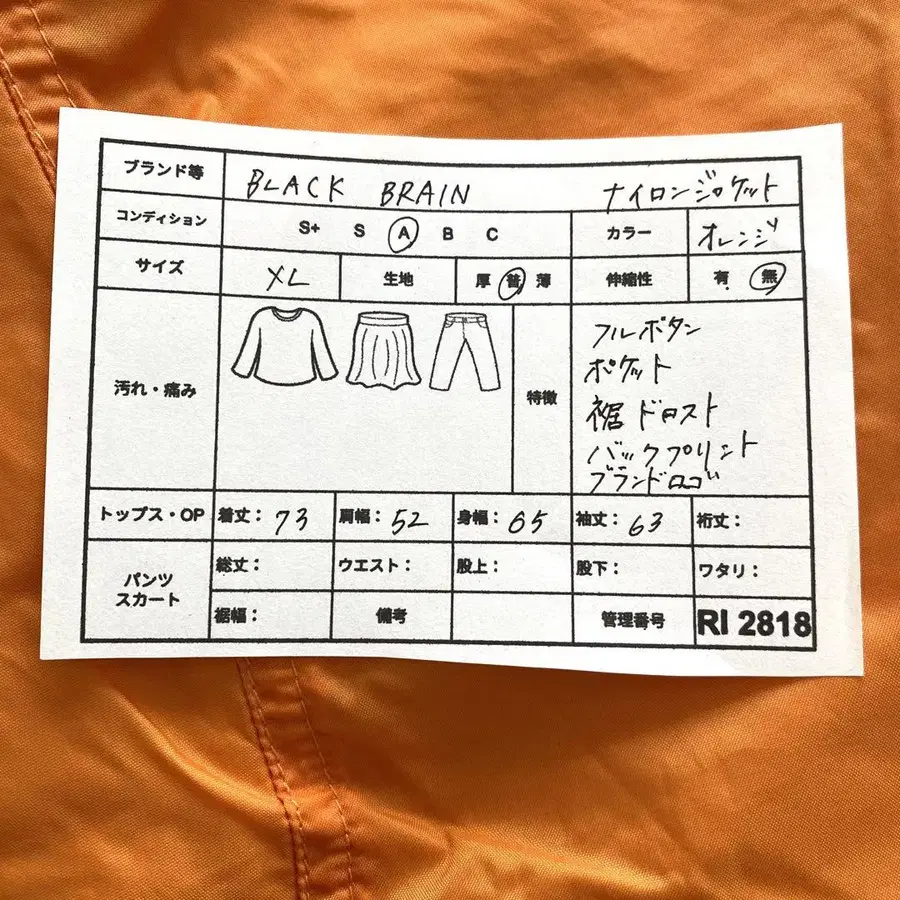 ブランド等 BLACK BRAIN ナイロンジャケット
コンディション S+ S A B C カラー オレンジ
サイズ XL 生地 厚 普 薄 伸縮性 有 無
汚れ・痛み 特徴
フルボタン
ポケット
裾ドロスト
バックプリント
ブランドロゴ
トップス・OP 着丈：73 肩幅：52 身幅：65 袖丈：63 裄丈：
パンツ スカート 総丈： ウエスト： 股上： 股下： ワタリ：
裾幅： 備考 管理番号 RI 2818